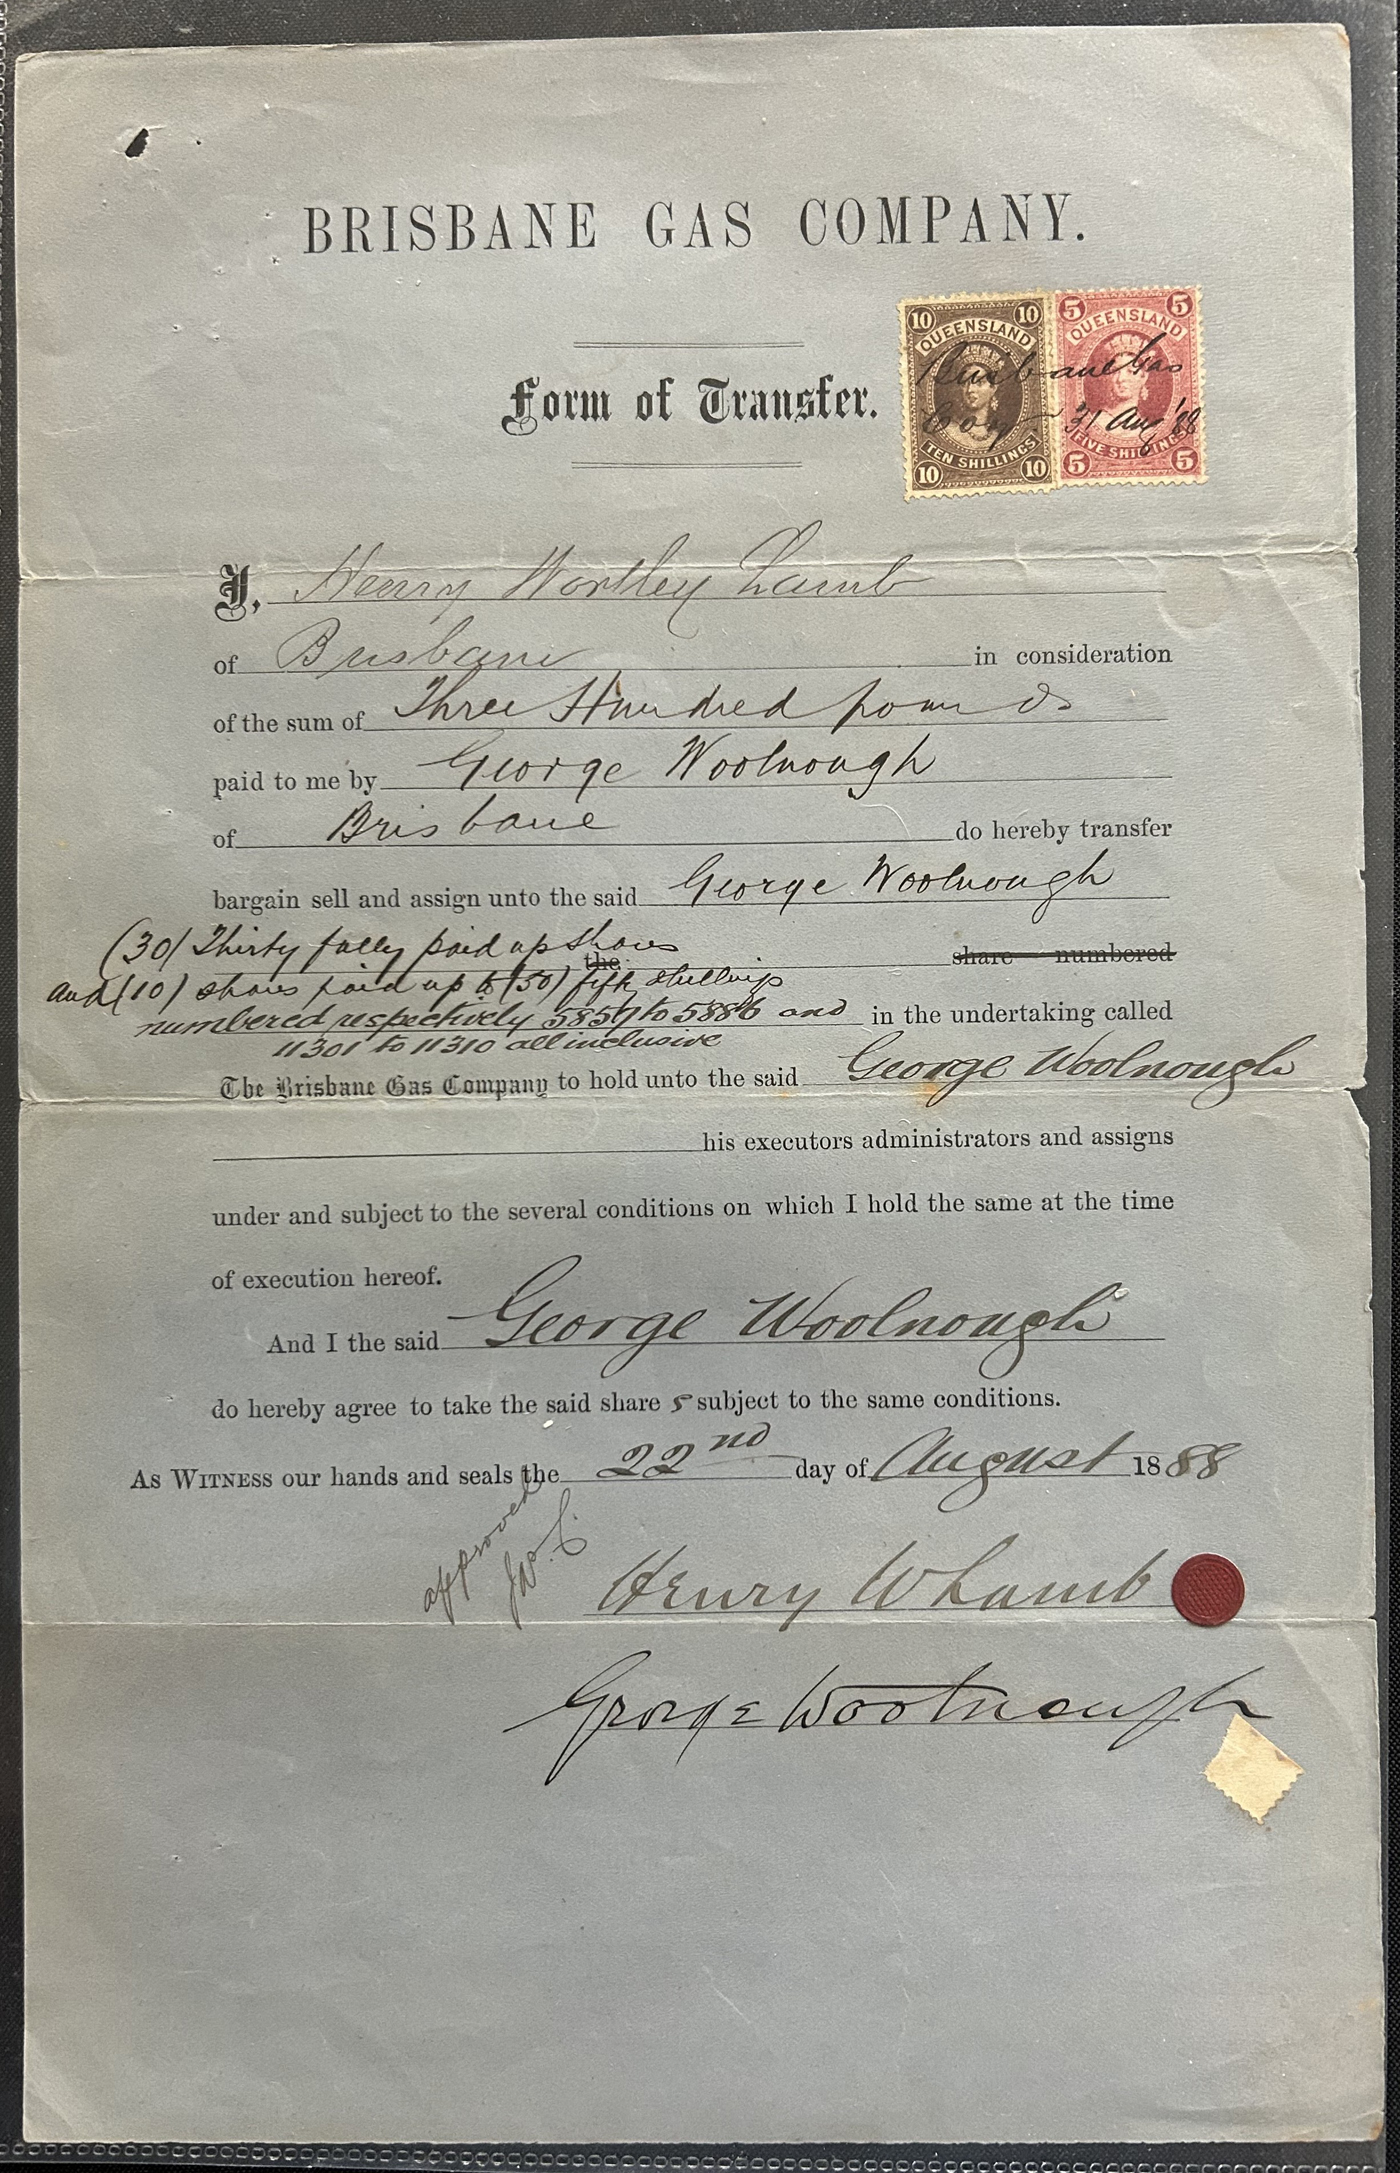 BRISBANE GAS COMPANY.
10 10
QUEENSLAND
TEN SHILLINGS
10 10
5 5
QUEENSLAND
FIVE SHILLINGS
5 5
Brisbane Gas
Coy. 31 Aug '88
Form of Transfer.
I, Henry Wortley Lamb
of Brisbane in consideration
of the sum of Three Hundred pounds
paid to me by George Woolnough
of Brisbane do hereby transfer
bargain sell and assign unto the said George Woolnough
(30) Thirty fully paid up shares the share numbered
and (10) shares paid up to (50) fifty shillings
numbered respectively 5857 to 5886 and in the undertaking called
11301 to 11310 all inclusive
The Brisbane Gas Company to hold unto the said George Woolnough
his executors administrators and assigns
under and subject to the several conditions on which I hold the same at the time
of execution hereof.
And I the said George Woolnough
do hereby agree to take the said share s subject to the same conditions.
As Witness our hands and seals the 22nd day of August 1888
approved
Henry W Lamb
George Woolnough